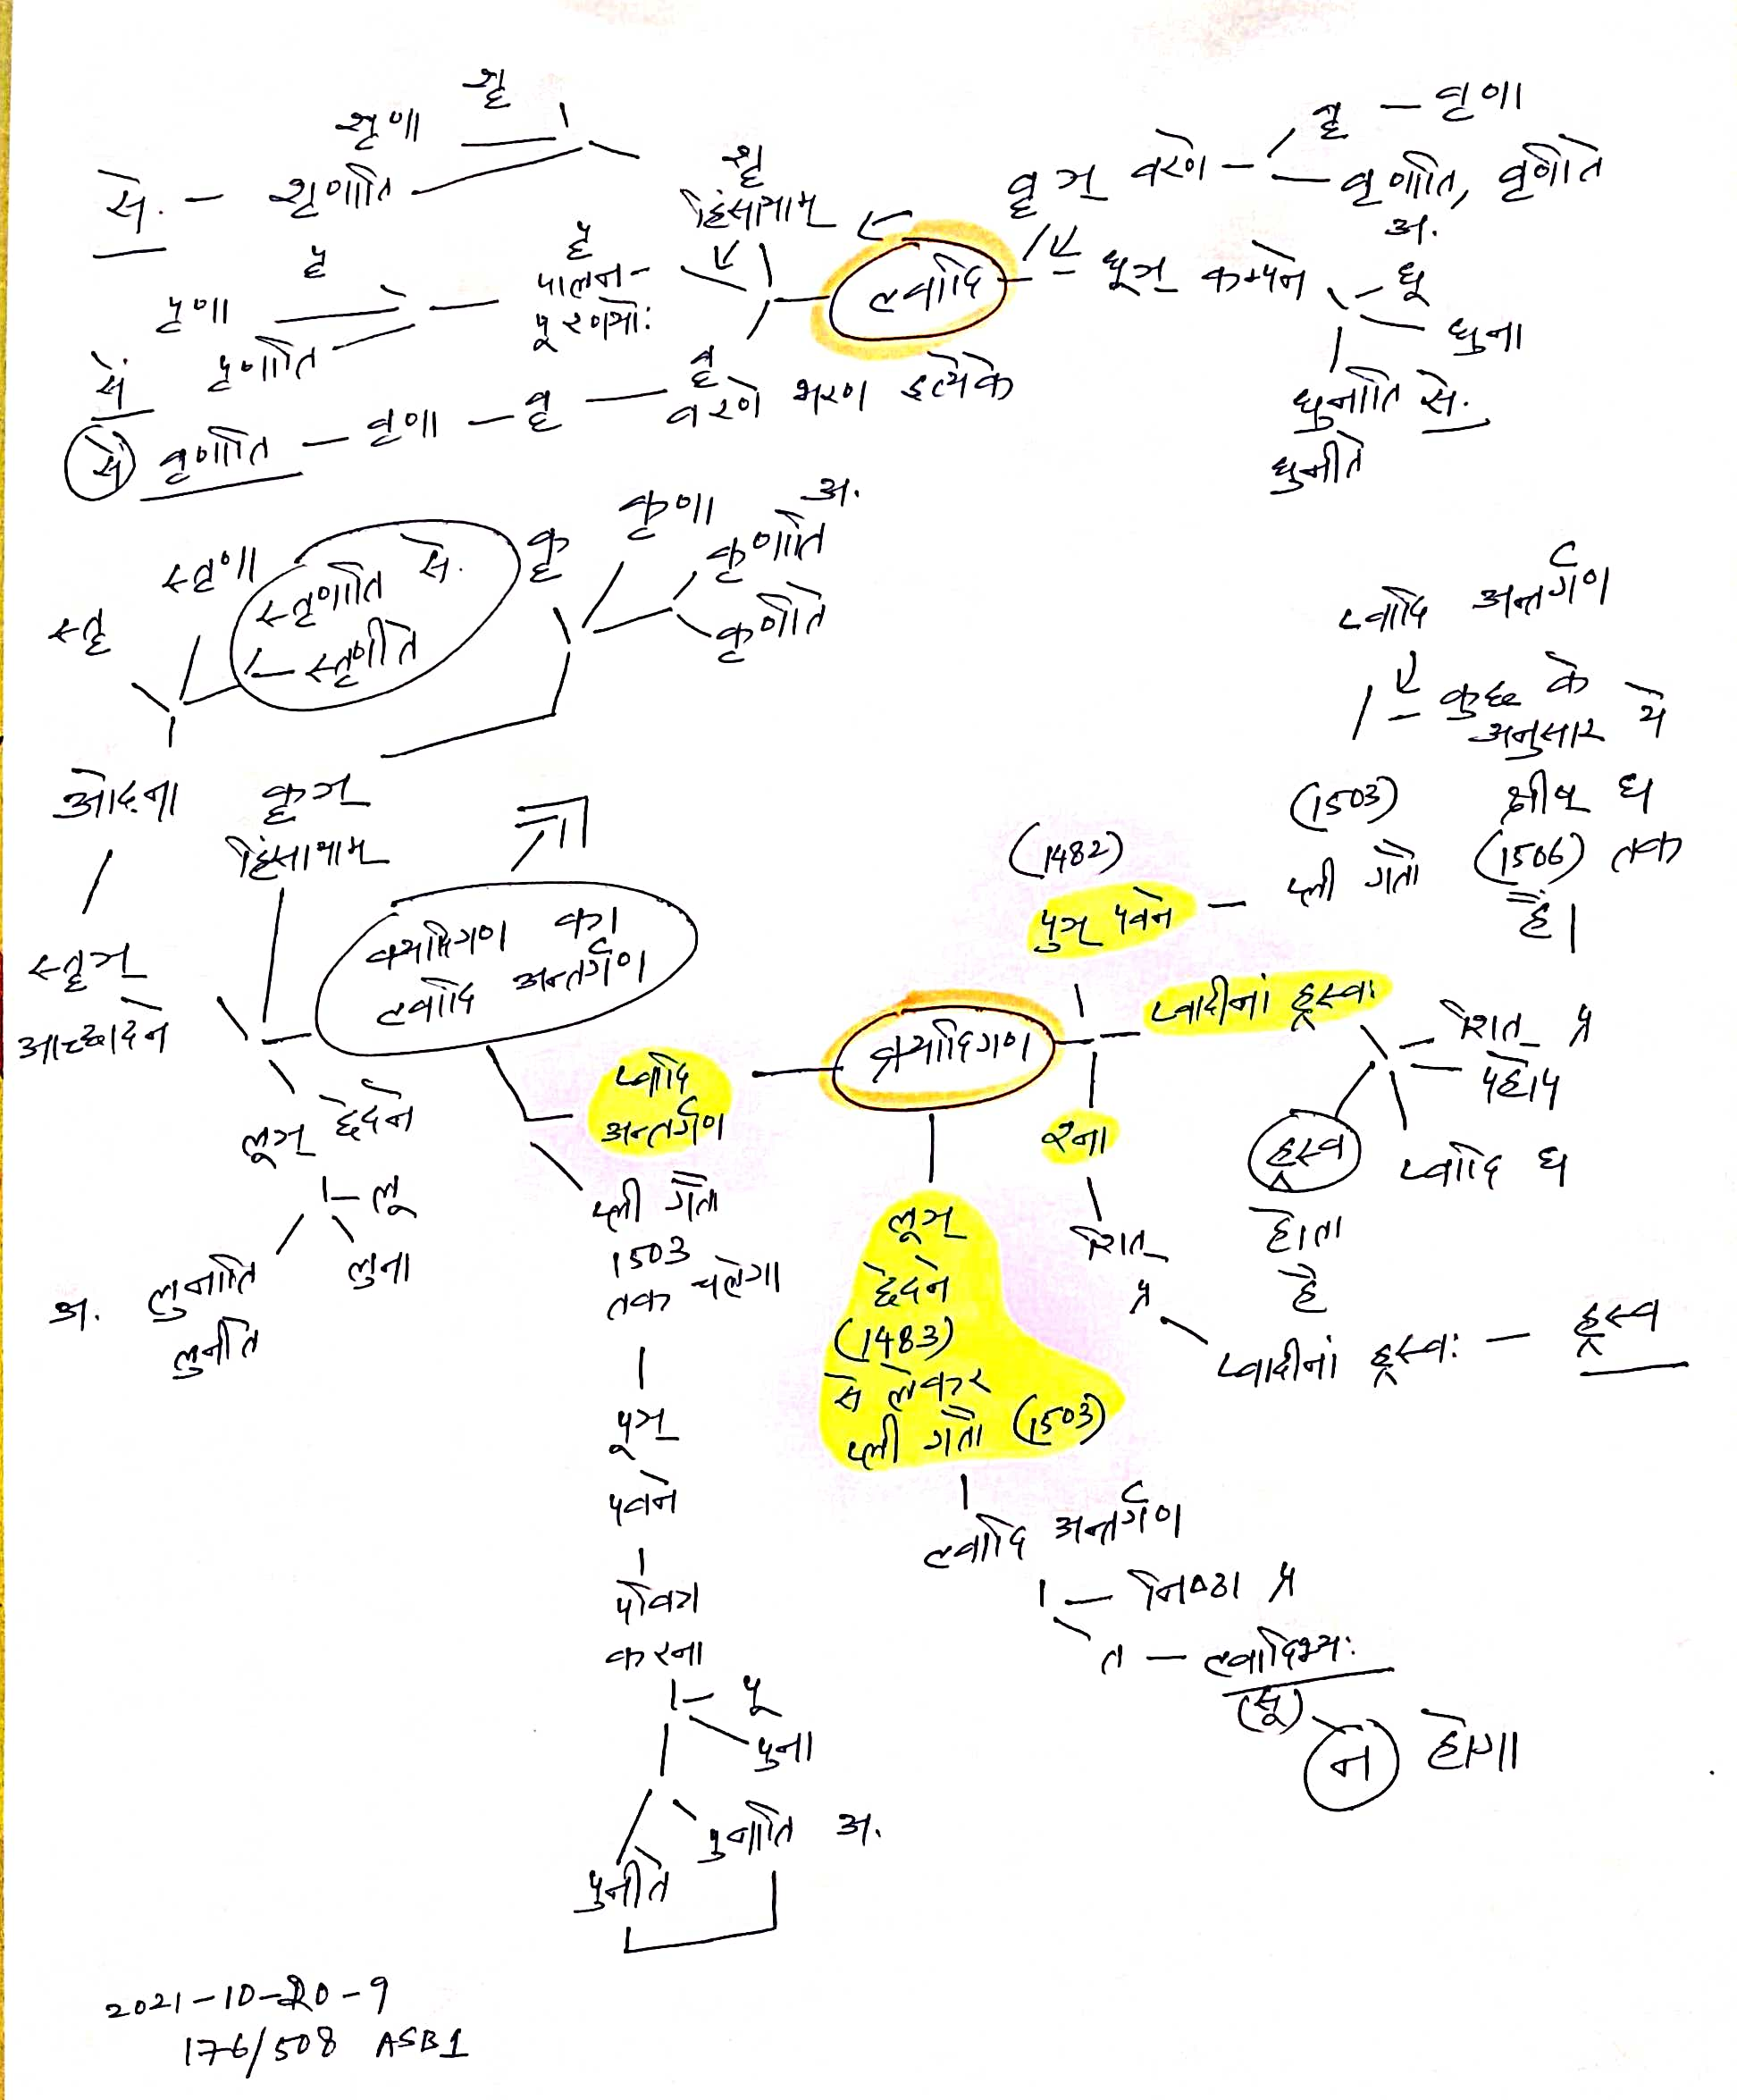 शॄ
शृणा
से. — शृणाति
शॄ
हिंसायाम्
पॄ
पृणा
से पृणाति
पॄ
पालन-
पूरणयोः
से वृणाति — वृणा — वॄ — वॄ
वरणे भरण इत्येके
ल्वादि
वॄञ् वरणे
वॄ — वृणा
वृणाति, वृणीते
अ.
धूञ् कम्पने
धू
धुना
धुनाति से.
धुनीते
स्तॄ
स्तृणा
स्तृणाति से.
स्तृणीते
कॄ
कृणा अ.
कृणाति
कृणीते
ओढ़ना
कॄञ्
हिंसायाम्
स्तॄञ्
आच्छादने
क्र्यादिगण का
ल्वादि अन्तर्गण
लूञ् छेदने
लू
लुना
अ. लुनाति
लुनीते
प्वादि अन्तर्गण
कुछ के
अनुसार ये
(1503) क्षीष् धा
प्ली गतौ (1506) तक
हैं।
(1482)
पूञ् पवने — प्ली गतौ
क्र्यादिगण
प्वादीनां ह्रस्वः
शित् प्र
परे हो प
प्वादि धा
ह्रस्व
होता
है
श्ना
शित्
प्र
प्वादीनां ह्रस्वः — ह्रस्व
प्वादि
अन्तर्गण
प्ली गतौ
1503
तक चलेगा
पूञ्
पवने
पवित्र
करना
पू
पुना
पुनाति अ.
पुनीते
लूञ्
छेदने
(1483)
से लेकर
प्ली गतौ (1503)
ल्वादि अन्तर्गण
निष्ठा प्र
त — ल्वादिभ्यः
(सू)
न होगा
2021-10-20-9
176/508 ASB1